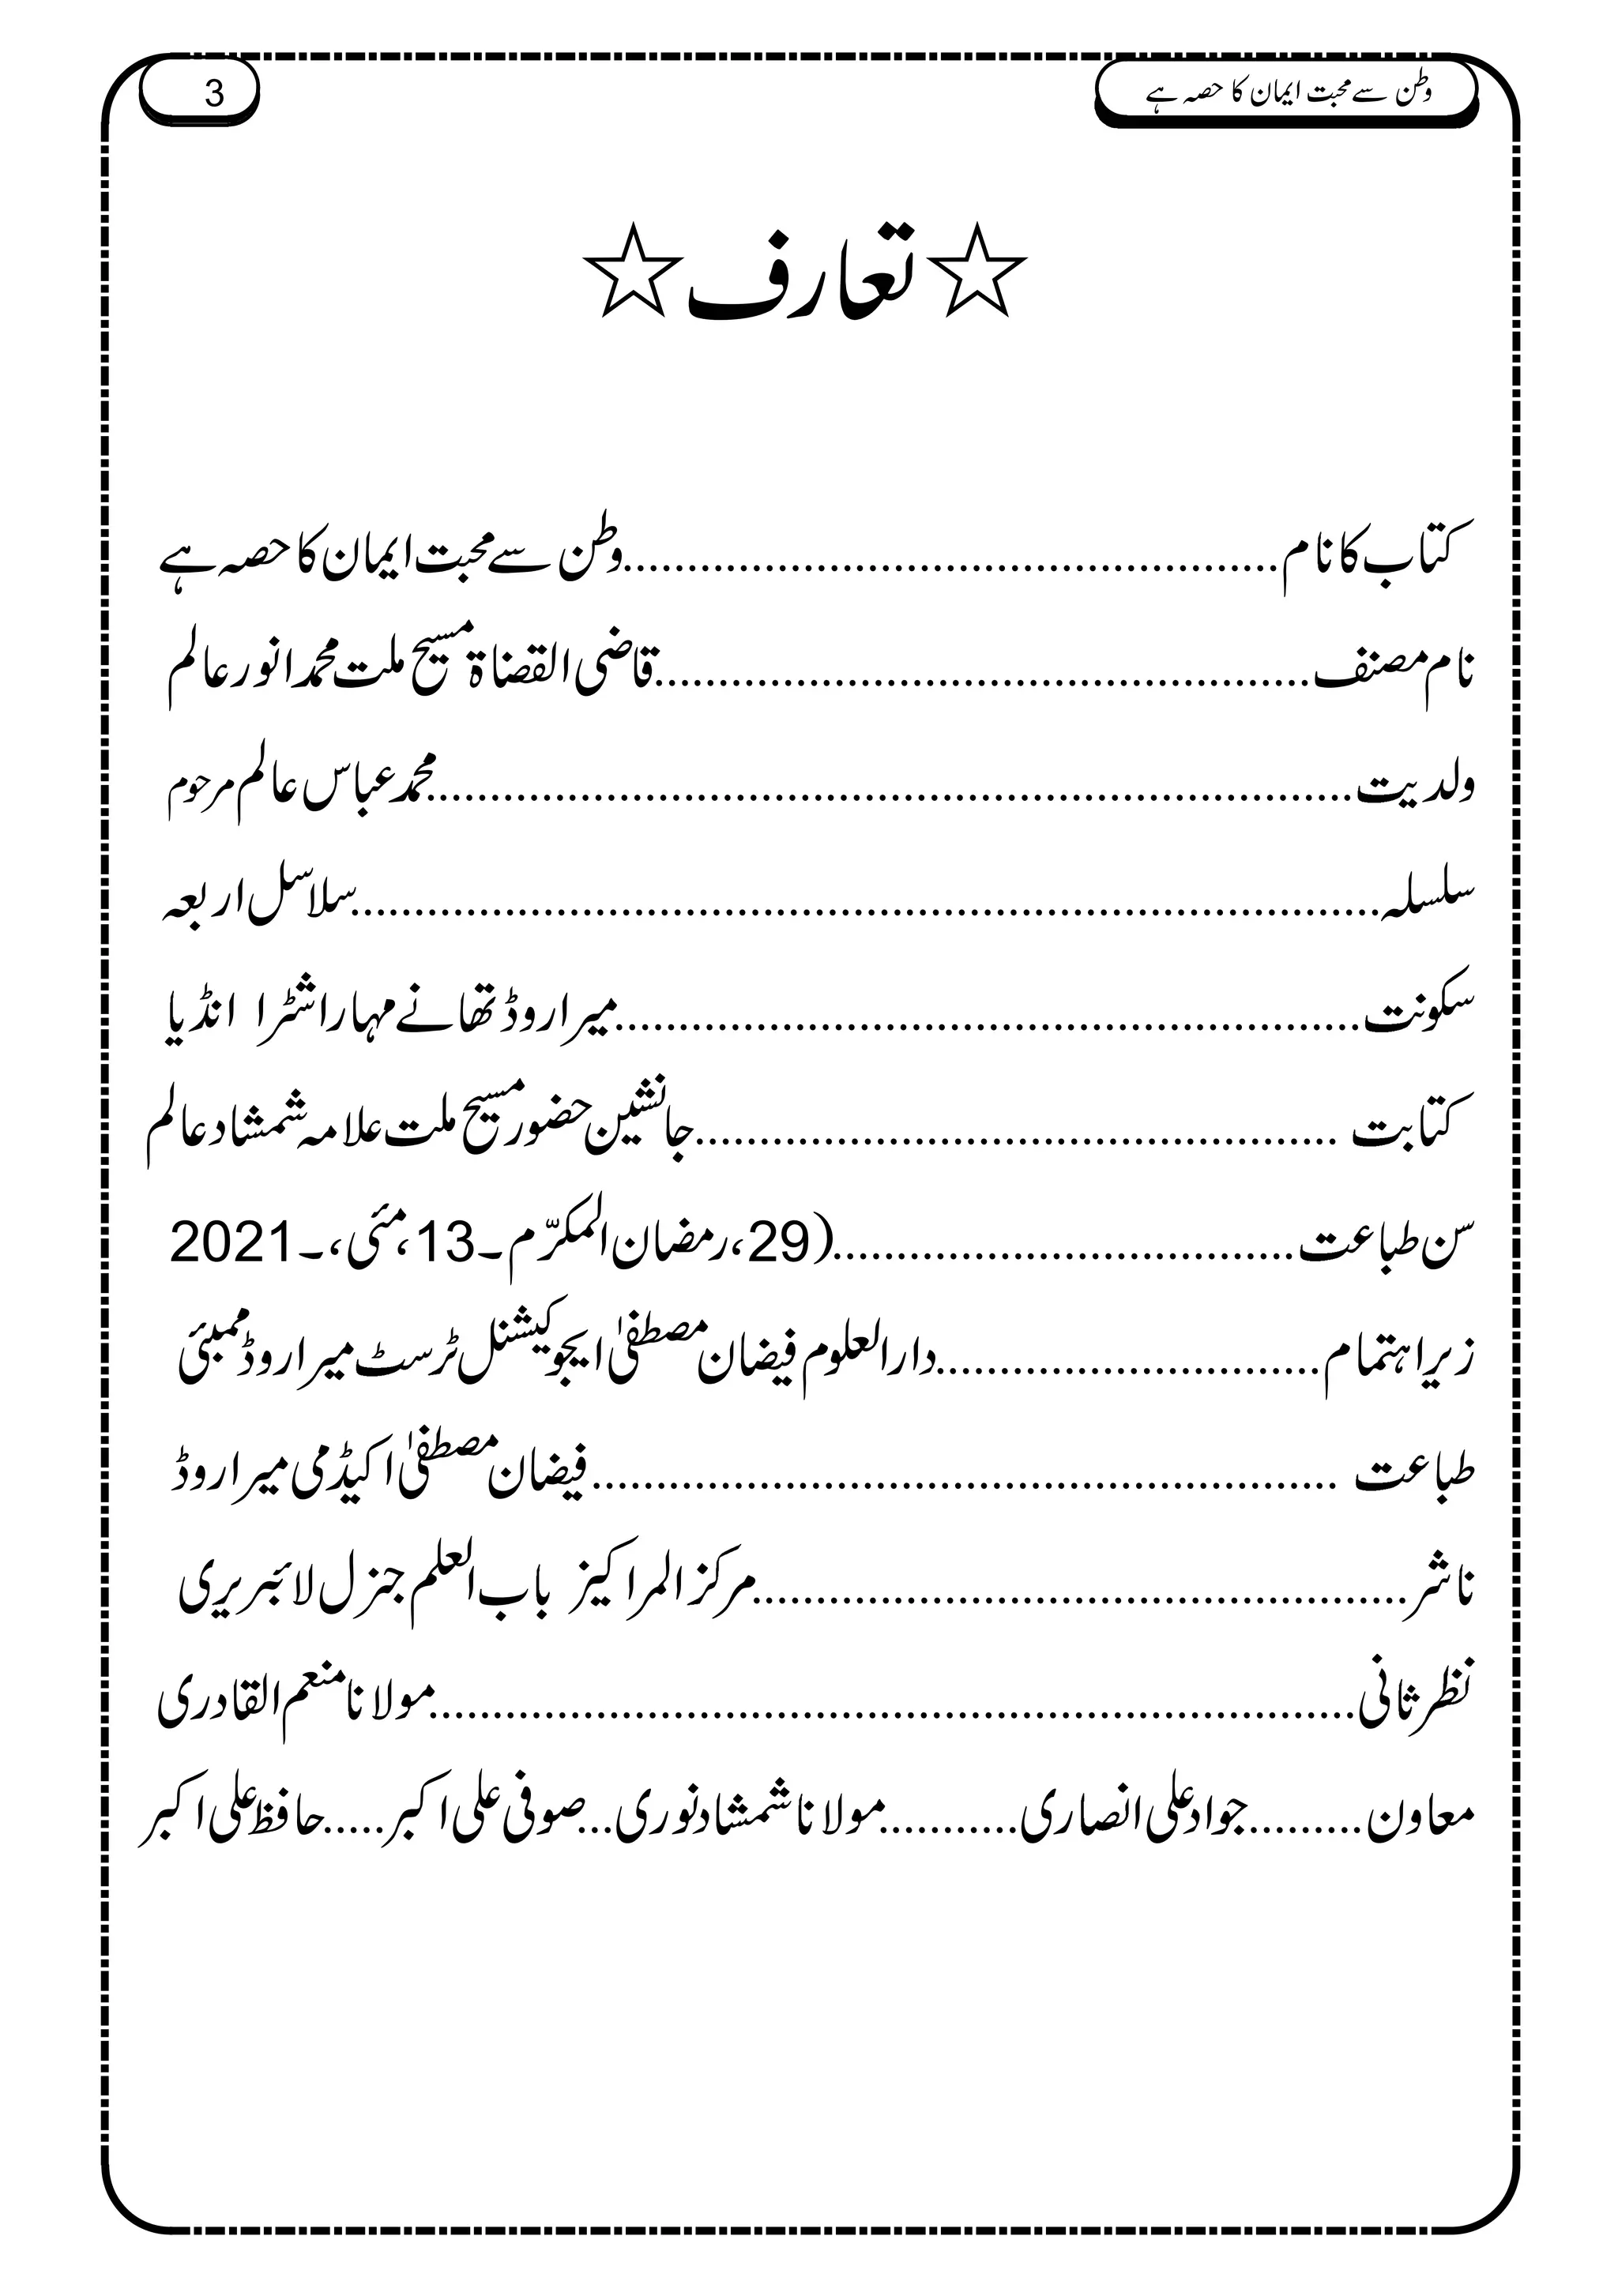 وطن سے محبت ایمان کا حصہ ہے
3
☆تعارف☆
کتاب کا نام...................................................وطن سے محبت ایمان کا حصہ ہے
نام مصنف...................................................قاضی القضاۃ مسیح ملت محمد انور عالم
ولدیت........................................................................محمد عباس عالم مرحوم
سلسلہ................................................................................سلاسل اربعہ
سکونت..........................................................میرا روڈ تھانے مہاراشٹرا انڈیا
کتابت ..................................................جانشین حضور مسیح ملت علامہ شمشاد عالم
سن طباعت....................................(29،رمضان المکرّم۔13،مئی،۔2021
زیر اہتمام..............................دارالعلوم فیضان مصطفیٰ ایجوکیشنل ٹرسٹ میرا روڈ ممبئی
طباعت ..........................................................فیضان مصطفیٰ اکیڈمی میرا روڈ
ناشر...................................................مرکز المراکیز باب العلم جنرل لائبریری
نظر ثانی........................................................................مولانا منعم القادری
معاون.........جواد علی انصاری...........مولانا شمشاد نوری...صوفی علی اکبر.....حافظ علی اکبر